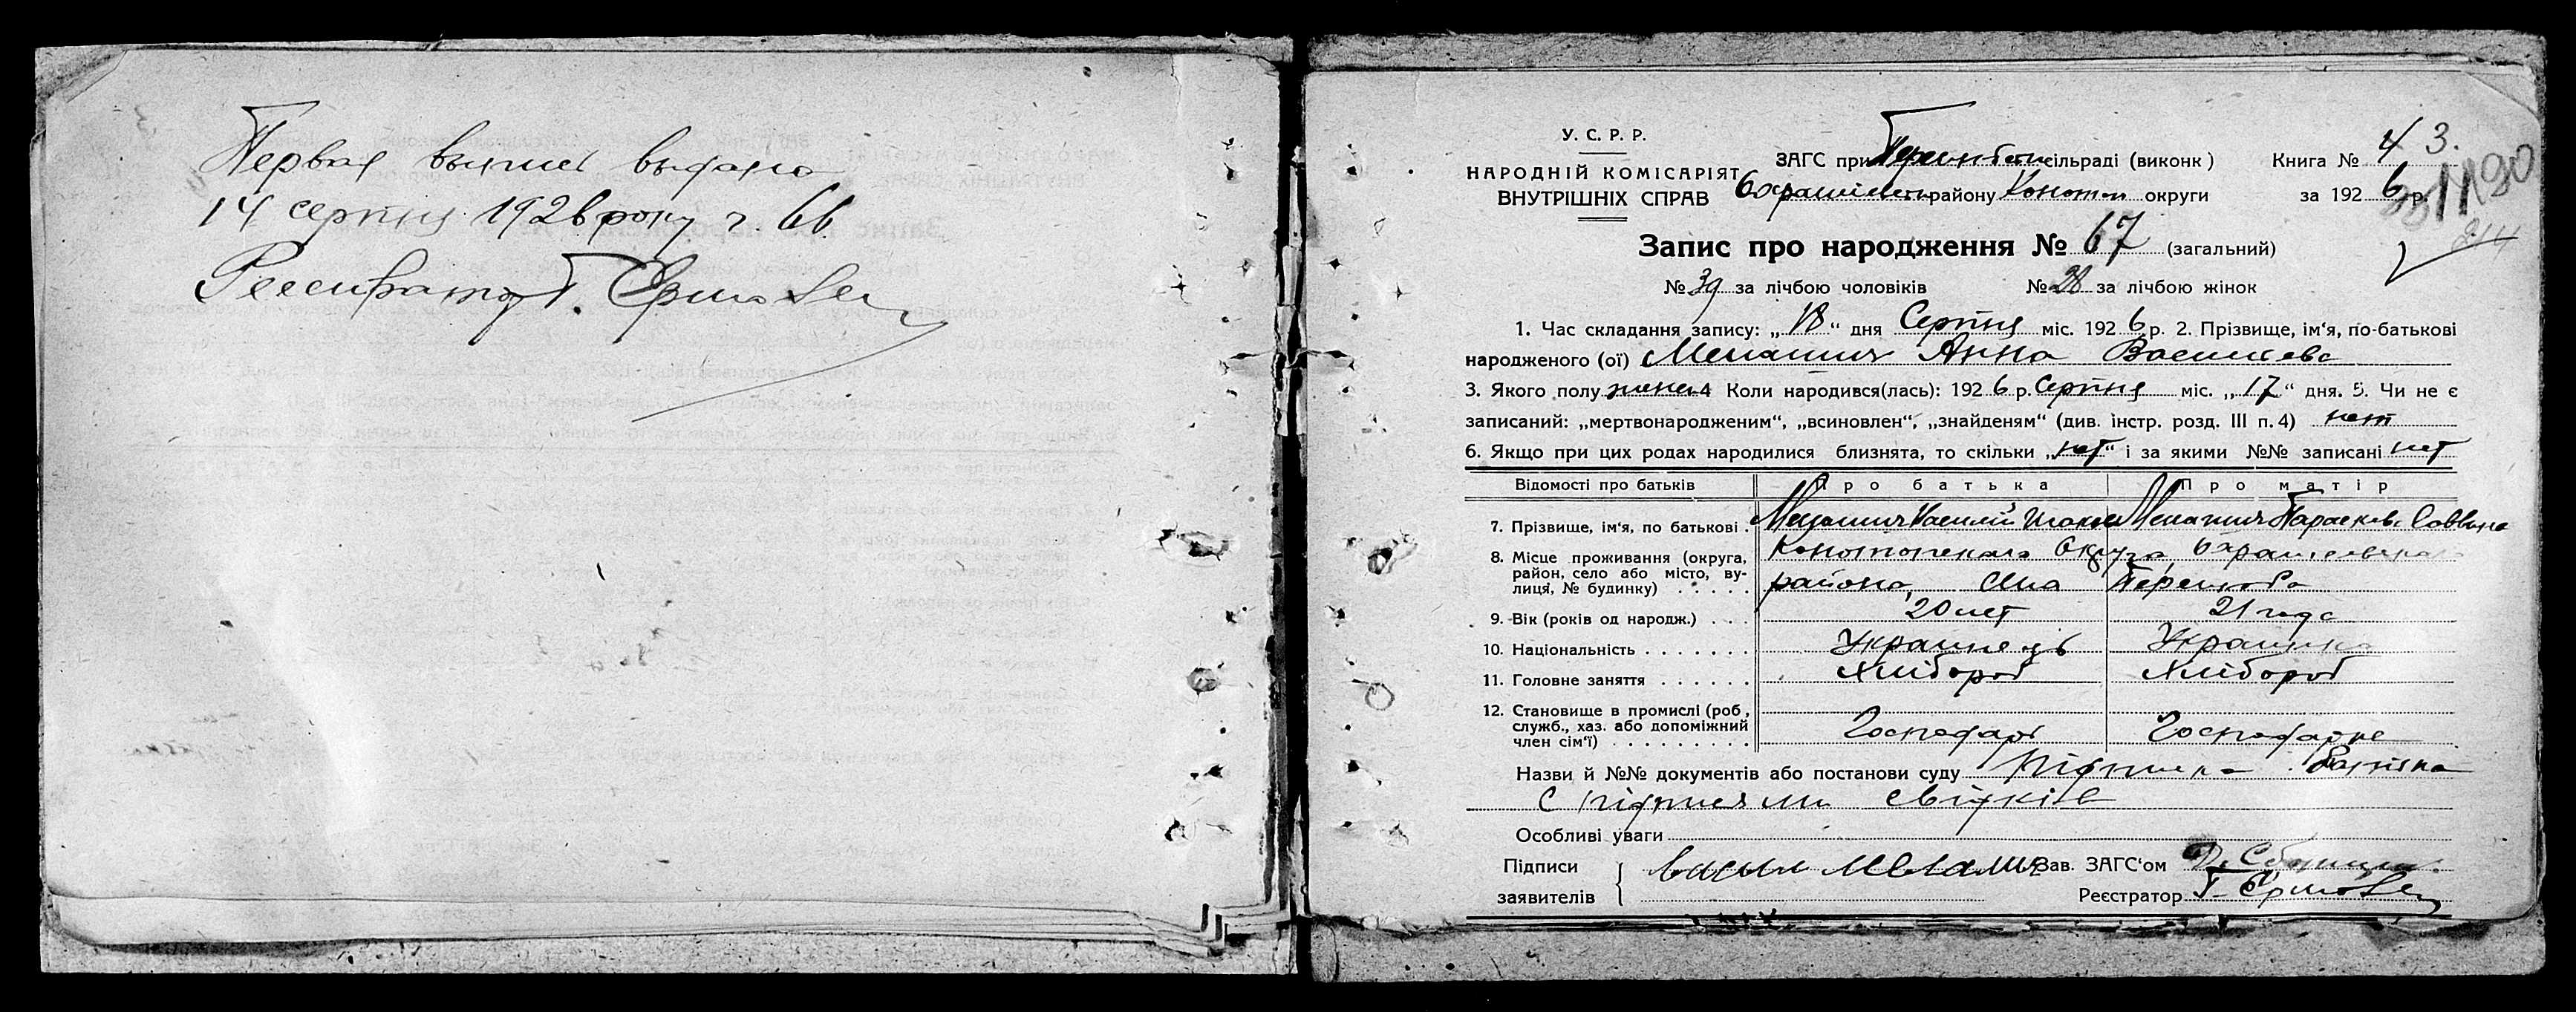 Первая выпись выдана
14 серпня 1926 року г. 66.
Реєстратор Г.
У. С. Р. Р.
НАРОДНІЙ КОМІСАРІЯТ
ВНУТРІШНІХ СПРАВ
ЗАГС при сільраді (виконк)
району Конотоп округи
Книга № 3.
за 1926 р.
Запис про народження № 67 (загальний)
№ 39 за лічбою чоловіків № 28 за лічбою жінок
1. Час складання запису: „18“ дня Серпня міс. 1926 р. 2. Прізвище, ім‘я, по-батькові
народженого (ої) Мелашич Анна Васильева
3. Якого полу женс 4 Коли народився(лась): 1926 р. Серпня міс. „17“ дня. 5. Чи не є
записаний: „мертвонародженим“, „всиновлен“, „знайденям“ (див. інстр. розд. III п. 4) нет
6. Якщо при цих родах народилися близнята, то скільки „нет“ і за якими №№ записані нет
Відомості про батьків Про батька Про матір
7. Прізвище, ім‘я, по батькові . Мелашич Василий Мелашич Параскев. Саввична
8. Місце проживання (округа, район, село або місто, вулиця, № будинку) . . . . . Конотопского Округа,
района, села
9. Вік (років од народж.) . . . 20 лет 21 года
10. Національність . . . . . . . Украинець Украинка
11. Головне заняття . . . . . . Хлібороб Хлібороб
12. Становище в промислі (роб, служб., хаз. або допоміжний член сім‘ї) . . . . . . . . . Господарь Господарке
Назви й №№ документів або постанови суду Підписка батька
с підписями свідків
Особливі уваги
Підписи
заявителів
Василь Мелашич
Зав. ЗАГС‘ом
Реєстратор Г.